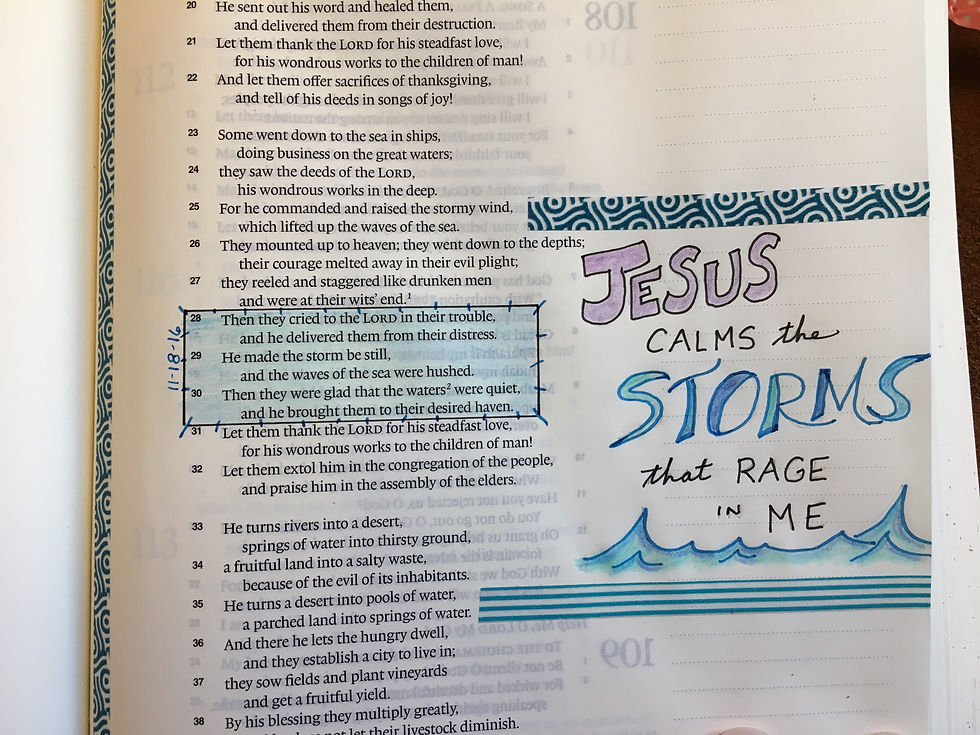 20 He sent out his word and healed them,
and delivered them from their destruction.
21 Let them thank the LORD for his steadfast love,
for his wondrous works to the children of man!
22 And let them offer sacrifices of thanksgiving,
and tell of his deeds in songs of joy!
23 Some went down to the sea in ships,
doing business on the great waters;
24 they saw the deeds of the LORD,
his wondrous works in the deep.
25 For he commanded and raised the stormy wind,
which lifted up the waves of the sea.
26 They mounted up to heaven; they went down to the depths;
their courage melted away in their evil plight;
27 they reeled and staggered like drunken men
and were at their wits' end.¹
28 Then they cried to the LORD in their trouble,
and he delivered them from their distress.
29 He made the storm be still,
and the waves of the sea were hushed.
30 Then they were glad that the waters² were quiet,
and he brought them to their desired haven.
31 Let them thank the LORD for his steadfast love,
for his wondrous works to the children of man!
32 Let them extol him in the congregation of the people,
and praise him in the assembly of the elders.
33 He turns rivers into a desert,
springs of water into thirsty ground,
34 a fruitful land into a salty waste,
because of the evil of its inhabitants.
35 He turns a desert into pools of water,
a parched land into springs of water.
36 And there he lets the hungry dwell,
and they establish a city to live in;
37 they sow fields and plant vineyards
and get a fruitful yield.
38 By his blessing they multiply greatly,
not let their livestock diminish.
11-18-16
JESUS
CALMS the
STORMS
that RAGE
IN ME